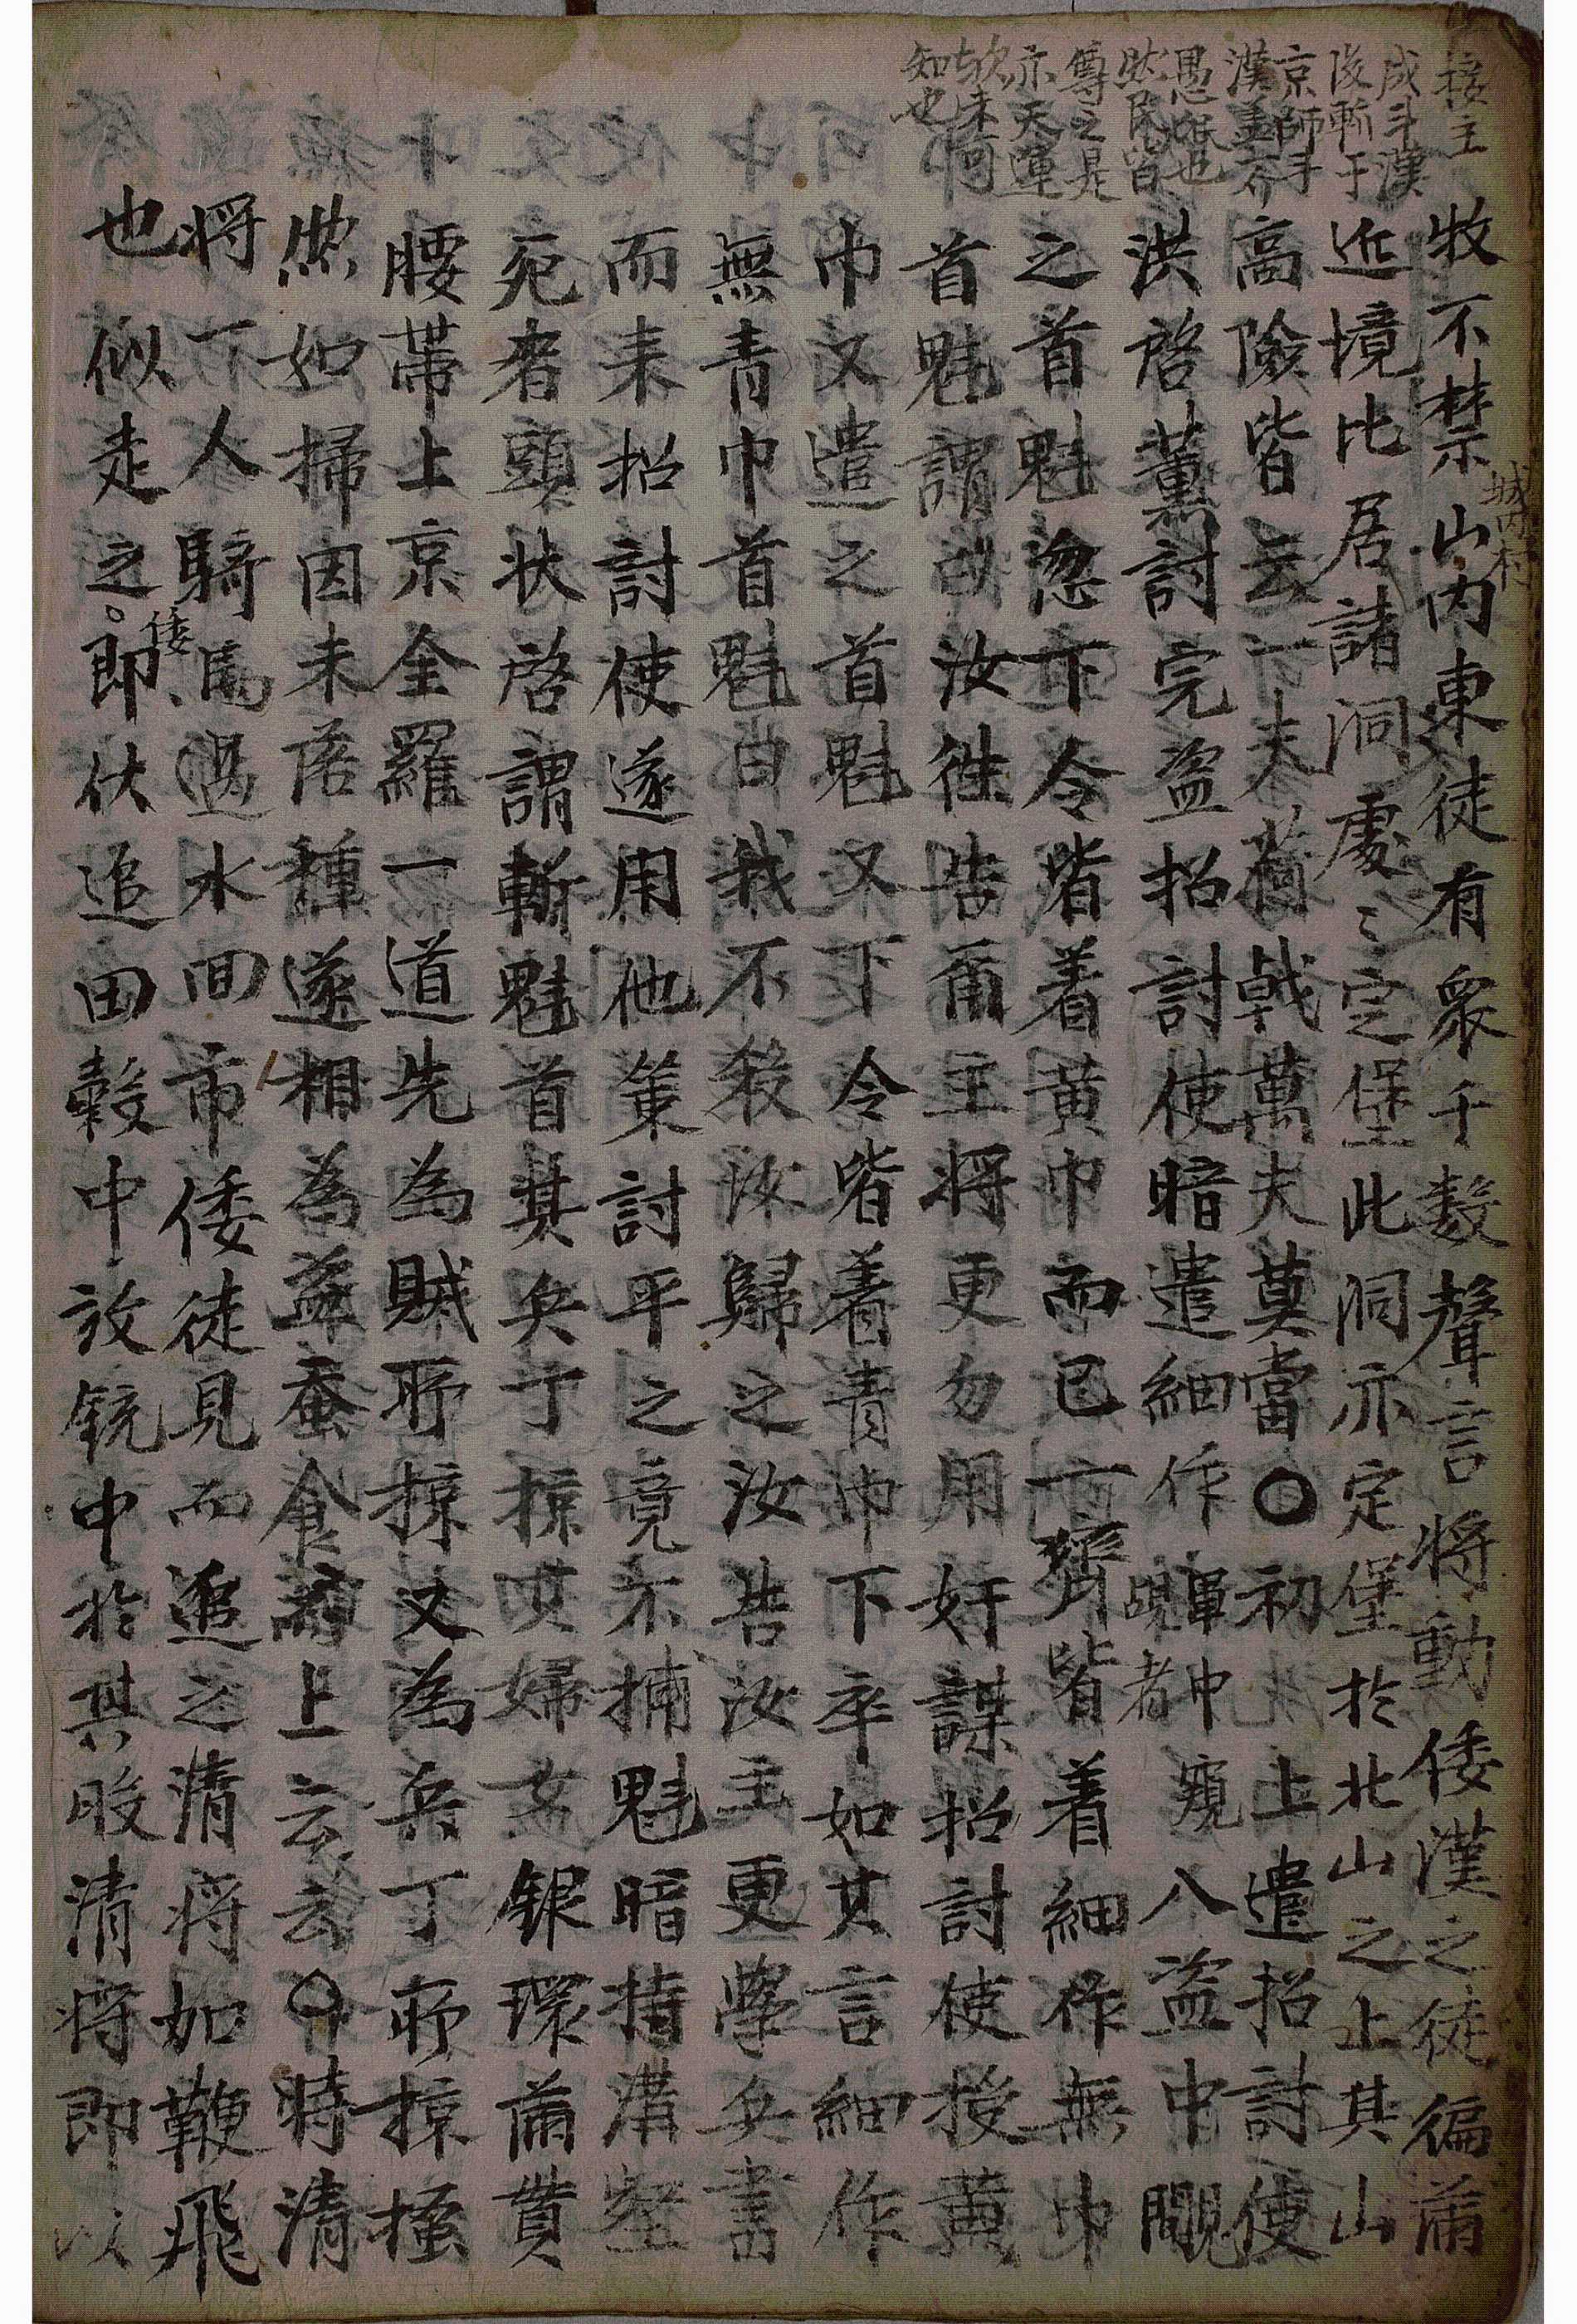 接主
成斗漢
後斬于
京師斗
漢盖不
愚氓也
然民皆
尊之是
亦天運
欤未可
知也
牧不禁山内東徒有衆千數聲言將動倭漢之徒徧滿
城内村
近境比居諸洞處〻定堡此洞亦定堡於北山之上其山
高險皆云一夫荷戟萬夫莫當〇初上遣招討使
洪啓薰討完盜招討使暗遣細作軍中窺八盜中覸
覘者
之首魁忽下令皆着黃巾而已一齊皆着細作無巾
首魁謂曰汝徃告甭主將更勿用奸謀招討使授黃
巾又遣之首魁又下令皆着青巾下卒如其言細作
無青巾首魁白我不殺汝歸之汝告汝主更學兵書
而来招討使遂用他策討平之竟不捕魁暗持溝壑
死者頭状啓謂斬魁首其兵丁掠   婦女銀環甭貰
腰帶上京全羅一道先為賊所掠又為兵丁所掠搔
然如掃因未落種遂相為盜蚕食  上云云〇時清
將一人騎馬過水間市倭徒見而追之清將如鞭飛
也似走之即伏追田穀中放銃中於其股清將即以
倭